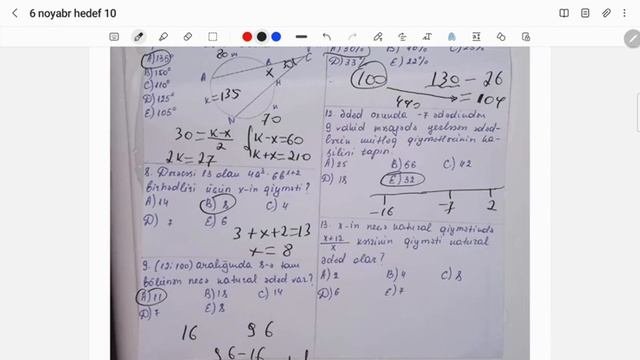 6 noyabr hedef 10
A) 135°
B) 150°
C) 110°
D) 125°
E) 105°
K=135
70
30 = K-x
2
K-x=60
K+x=210
2K=27
8. Dərəcəsi 13 olan 4a³·6b^x+2
birhədlisi üçün x-in qiyməti?
A) 14
B) 8
C) 4
D) 7
E) 6
3+x+2=13
x=8
9. (13;100) aralığında 8-ə tam
bölünən neçə natural ədəd var?
A) 11
B) 18
C) 14
D) 7
E) 8
16
96
96-16
A) 30%
B) 40%
C) 25%
D) 33%
E) 22%
100
130-26
=104
12. Ədəd oxunda -7 ədədindən
9 vahid məsafədə yerləşən ədəd-
lərin mütləq qiymətlərinin ha-
silini tapın.
A) 25
B) 66
C) 42
D) 18
E) 32
-16
-7
2
13. x-in neçə natural qiymətində
x+12
x
kəsrinin qiyməti natural
ədəd olar?
A) 2
B) 4
C) 8
D) 6
E) 7